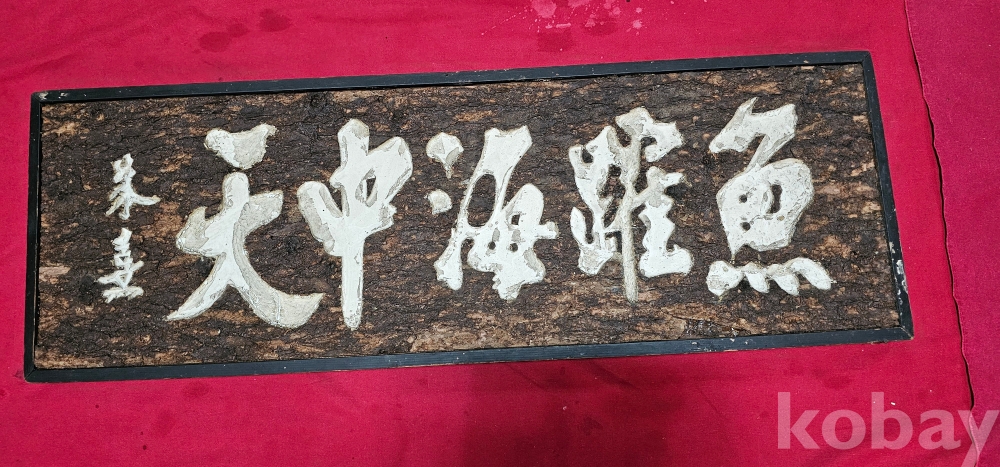 魚躍海中天
朱熹
kobay